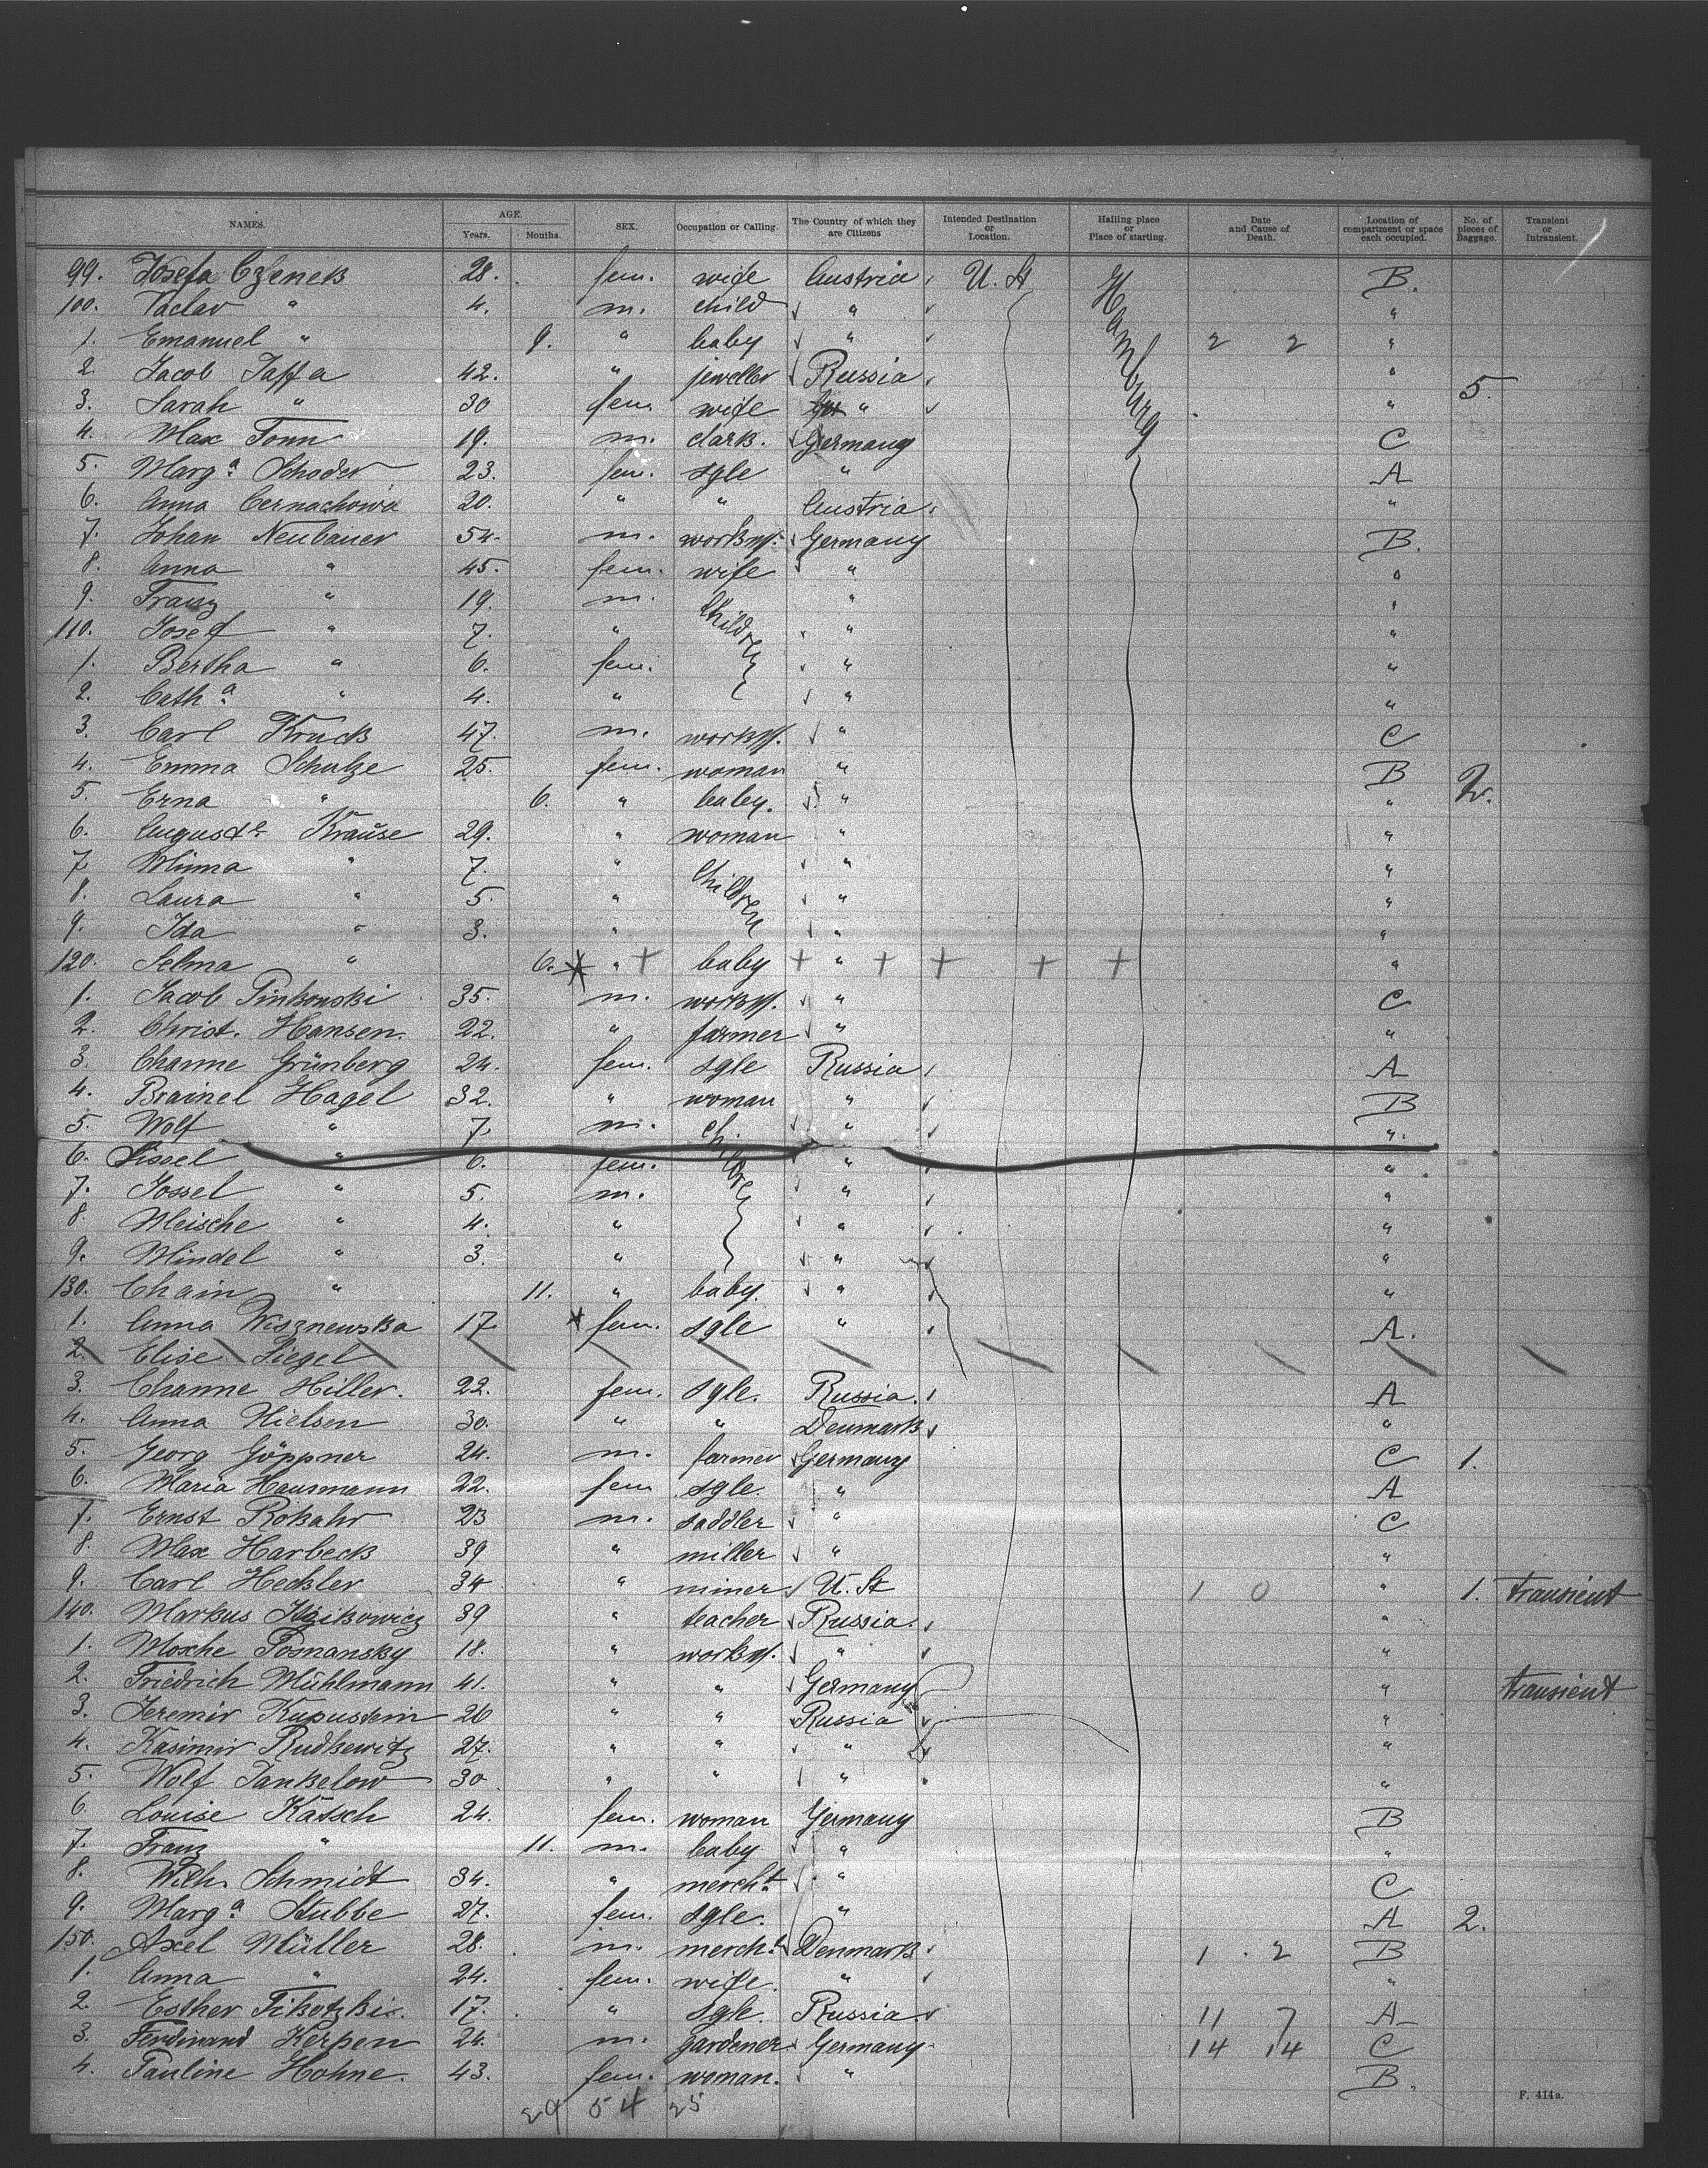 NAMES. AGE. Years. Months. SEX. Occupation or Calling. The Country of which they are Citizens Intended Destination or Location. Hailing place or Place of starting. Date and Cause of Death. Location of compartment or space each occupied. No. of pieces of Baggage. Transient or Intransient.
99. Josefa Czenek 28. fem. wife Austria U. St Hamburg B.
100. Vaclav " 4. m. child " "
1. Emanuel " 9. " baby " 2 2 "
2. Jacob Jaffa 42. " jeweller Russia " 5.
3. Sarah " 30 fem. wife " "
4. Max Tonn 19. m. clark. Germany C
5. Marga. Schoder 23. fem. sgle " A
6. Anna Cernachowa 20. " " Austria "
7. Johan Neubauer 54. m. workm. Germany B.
8. Anna " 45. fem. wife " "
9. Franz " 19. m. Children " "
110. Josef " 7. " " "
1. Bertha " 6. fem. " "
2. Catha. " 4. " " "
3. Carl Kruck 47. m. workm. " C
4. Emma Schulze 25. fem. woman " B 2.
5. Erna " 6. " baby. " "
6. Auguste Krause 29. " woman " "
7. Minna " 7. " Children " "
8. Laura " 5. " " "
9. Ida " 3. " " "
120. Selma " 6. " baby " "
1. Jacob Pinkonski 35. m. workm. " C
2. Christ. Hansen. 22. " farmer " "
3. Channe Grünberg 24. fem. sgle Russia A
4. Brainel Hagel 32. " woman " B
5. Wolf " 7. m. " "
6. Sissel " 6. fem. " "
7. Jossel " 5. m. " "
8. Meische " 4. " " "
9. Mindel " 3. " " "
130. Chain " 11. " baby. " "
1. Anna Wisznewska 17 fem. sgle " A.
2. Elise Siegel
3. Channe Hiller. 22. fem. sgle. Russia. A
4. Anna Nielsen 30. " " Denmark "
5. Georg Göppner 24. m. farmer Germany C 1.
6. Maria Hausmann 22. fem sgle. " A
7. Ernst Rokahr 23 m. saddler " C
8. Max Harbeck 39 " miller " "
9. Carl Heckler 34 " miner U. St 1 0 " 1. transient
140. Markus Itzikowicz 39 " teacher Russia. "
1. Mosche Posnansky 18. " workm. " "
2. Friedrich Mühlmann 41. " " Germany " transient
3. Jeremir Kupustein 26 " " Russia "
4. Kasimir Rudkewitz 27. " " " "
5. Wolf Jankelow 30 " " " "
6. Louise Kätsch 24. fem. woman Germany B
7. Franz " 11. m. baby " "
8. Wilh. Schmidt 34. " mercht " C
9. Marga. Stubbe 27. fem. sgle. " A 2.
150. Axel Müller 28. m. mercht Denmark 1 2 B
1. Anna " 24. fem. wife. " "
2. Esther Tikotzki. 17. " sgle. Russia. 11 7 A
3. Ferdinand Kerpen 24. m. gardener Germany 14 14 C
4. Pauline Hohne. 43. fem. woman. " B.
29 54 25
F. 414a.